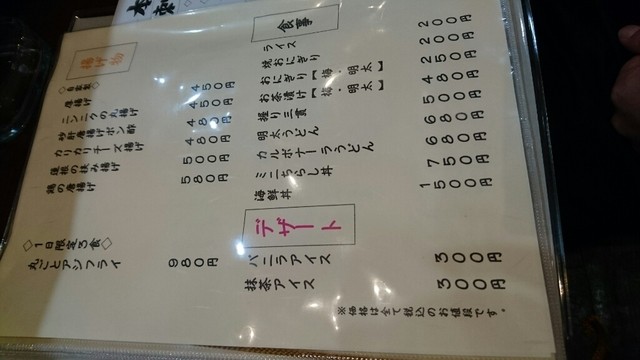 本
刺
揚げ物
◇自家製◇
唐揚げ 450円
ニンニクの丸揚げ 450円
砂肝唐揚げポン酢 480円
カリカリチーズ揚げ 480円
蓮根の挟み揚げ 500円
の唐揚げ 580円
◇1日限定3食◇
丸ごとアジフライ 980円
食事
ライス 200円
焼おにぎり 200円
おにぎり【梅・明太】 250円
お茶漬け【梅・明太】 480円
握り三貫 500円
明太うどん 680円
カルボナーラうどん 680円
ミニちらし丼 750円
海鮮丼 1500円
デザート
バニラアイス 300円
抹茶アイス 300円
※価格は全て税込のお値段です。